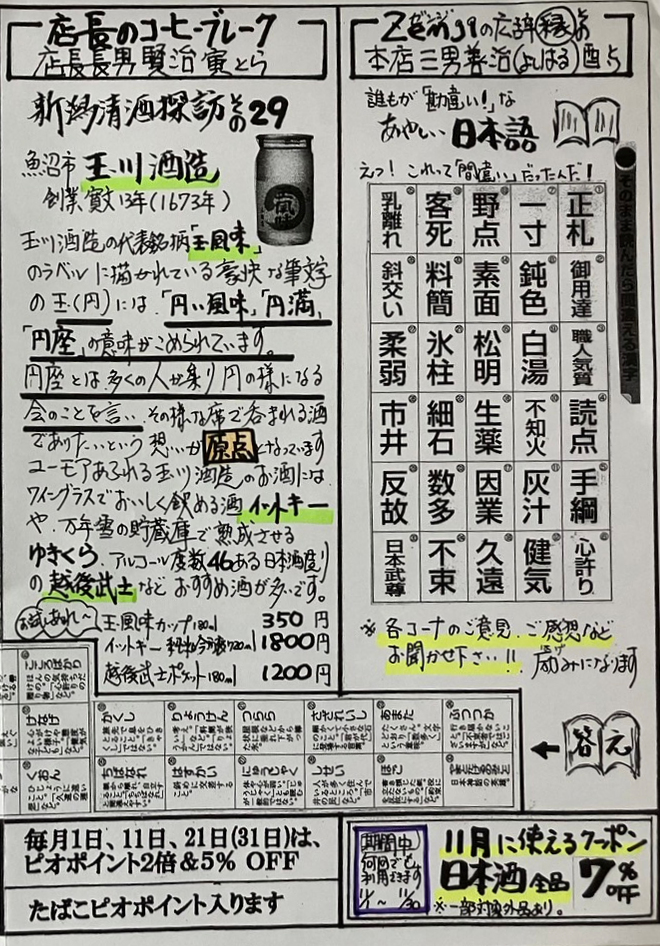 店長のコーヒーブレーク
店長長男 賢治 寅とら
新潟清酒探訪その29
魚沼市 玉川酒造
創業 寛文13年(1673年)
玉川酒造の代表銘柄「玉風味」
のラベルに描かれている豪快な筆字
の玉(円)には、「円い風味」「円満」
「円座」の意味がこめられています。
円座とは多くの人が集り円の様になる
会のことを言い、その様な席で呑まれる酒
でありたいという想いが原点になっています
ユーモアあふれる玉川酒造のお酒には
ワイングラスでおいしく飲める酒イットキー
や、万年雪の貯蔵庫で熟成させる
ゆきくら、アルコール度数46ある日本酒造り
の越後武士などおすすめ酒が多いです。
お試しあれ〜
玉風味カップ180ml 350円
イットキー 720ml 1800円
越後武士ポケット180ml 1200円
本店三男善治(よしはる)酉
誰もが「勘違い!」な
あやしい日本語
えっ!これって「間違い」だったんだ!
そのまま読んだら間違える漢字
正札 御用達 職人気質 読点 手綱 心許り
一寸 鈍色 白湯 不知火 灰汁 健気
野点 素面 松明 生薬 因業 久遠
客死 料簡 氷柱 細石 数多 不束
乳離れ 斜交い 柔弱 市井 反故 日本武尊
※各コーナのご意見、ご感想など
お聞かせ下さい!! 励みになります
答え
こころばかり
けなげ
かくし
りょうけん
つらら
さざれいし
あまた
ふつつか
くおん
ちばなれ
はすかい
にゅうじゃく
しせい
ほご
やまとたけるのみこと
毎月1日、11日、21日(31日)は、
ピオポイント2倍&5% OFF
たばこピオポイント入ります
期間中
何回でも
利用できます
11/1〜11/30
11月に使えるクーポン
日本酒全品 7%OFF
※一部対象外品あり。